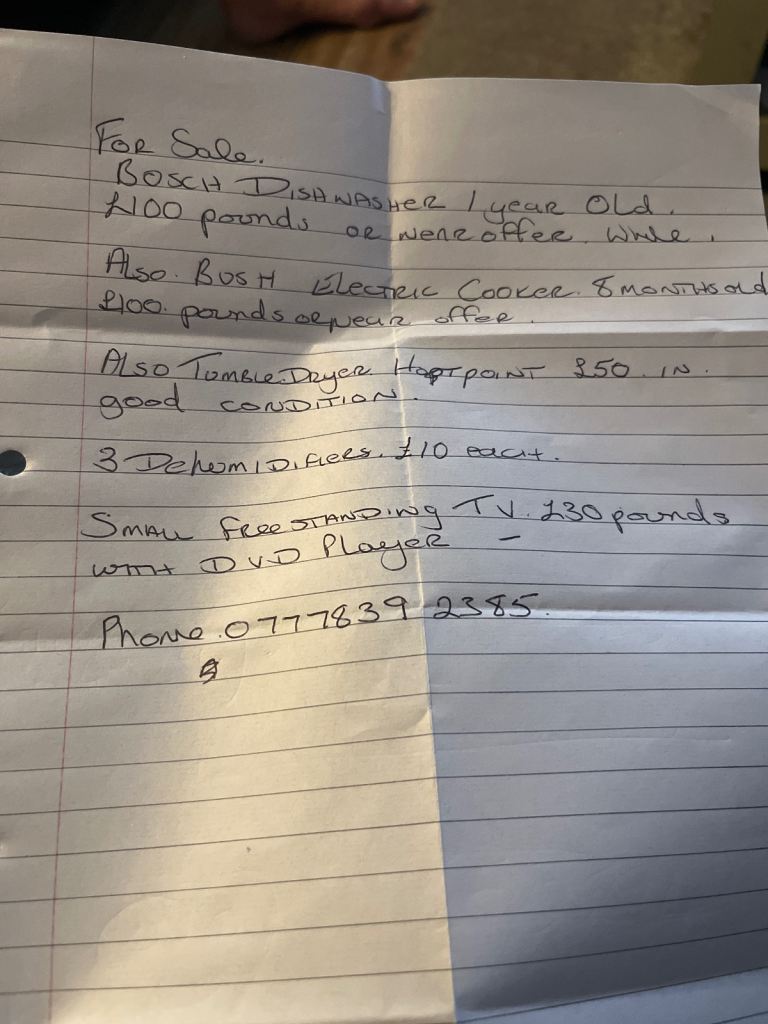 For Sale.
BOSCH DISHWASHER 1 year Old.
£100 pounds or near offer. White.
Also. BUSH Electric Cooker. 8 MONTHS old
£100. pounds or near offer.
Also Tumble. Dryer Hotpoint £50. in.
good CONDITION.
3 Dehumidifiers. £10 each.
Small freestanding TV. £30 pounds
with DVD Player –
Phone. 0777839 2385.